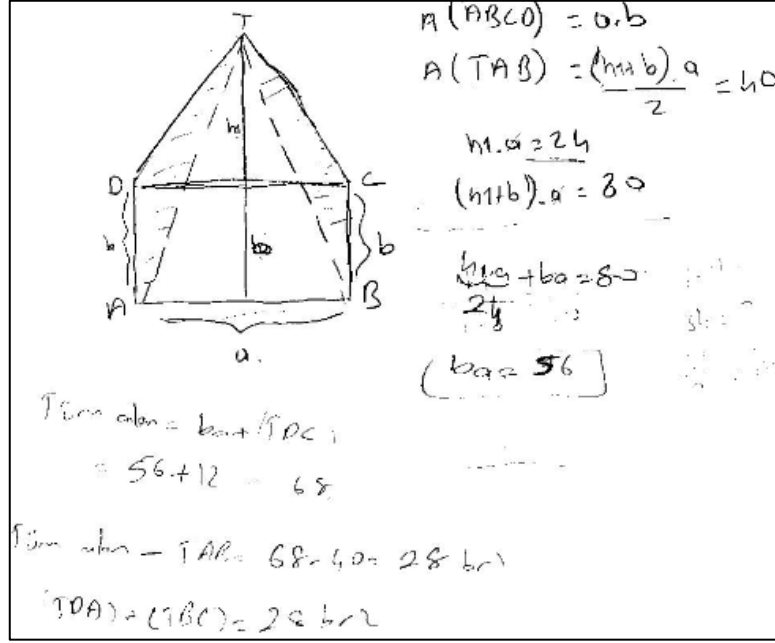 T
A(ABCD) = a.b
A(TAB) = (h1+b).a / 2 = 40
h1
h1.a = 24
D C
(h1+b).a = 80
b b
h1.a + ba = 80
24
A B
a.
(ba = 56]
Tüm alan = ba + (TDC)
= 56+12 = 68
Tüm alan - TAB = 68-40 = 28 br2
(TDA) + (TBC) = 28 br2